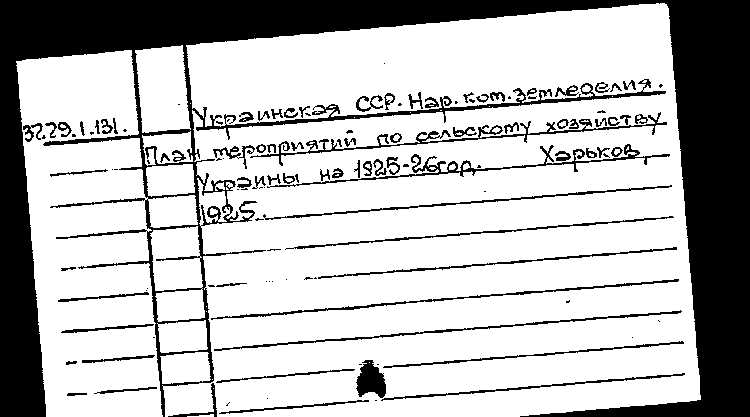 Украинская ССР. Нар. ком. земледелия.
3229.1.131.
План мероприятий по сельскому хозяйству
Украины на 1925-26год. Харьков,
1925.